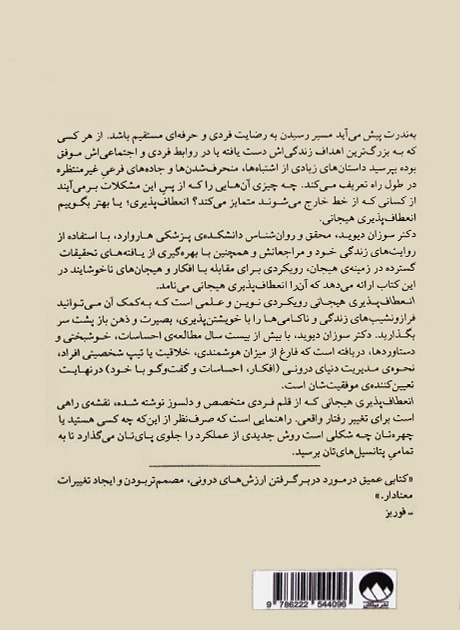 به‌ندرت پیش می‌آید مسیر رسیدن به رضایت فردی و حرفه‌ای مستقیم باشد. از هر کسی
که به بزرگ‌ترین اهداف زندگی‌اش دست یافته یا در روابط فردی و اجتماعی‌اش موفق
بوده بپرسید داستان‌های زیادی از اشتباه‌ها، منحرف‌شدن‌ها و جاده‌های فرعیِ غیرمنتظره
در طول راه تعریف می‌کند. چه چیزی آن‌هایی را که از پس این مشکلات برمی‌آیند
از کسانی که از خط خارج می‌شوند متمایز می‌کند؟ انعطاف‌پذیری؛ یا بهتر بگوییم
انعطاف‌پذیری هیجانی.
دکتر سوزان دیوید، محقق و روان‌شناس دانشکده‌ی پزشکی هاروارد، با استفاده از
روایت‌های زندگی خود و مراجعانش و همچنین با بهره‌گیری از یافته‌های تحقیقات
گسترده در زمینه‌ی هیجان، رویکردی برای مقابله با افکار و هیجان‌های ناخوشایند در
این کتاب ارائه می‌دهد که آن‌را انعطاف‌پذیری هیجانی می‌نامد.
انعطاف‌پذیری هیجانی رویکردی نوین و علمی است که به‌کمک آن می‌توانید
فرازونشیب‌های زندگی و ناکامی‌ها را با خویشتن‌پذیری، بصیرت و ذهن باز پشت سر
بگذارید. دکتر سوزان دیوید، با بیش از بیست سال مطالعه‌ی احساسات، خوشبختی و
دستاوردها، دریافته است که فارغ از میزان هوشمندی، خلاقیت یا تیپ شخصیتی افراد،
نحوه‌ی مدیریت دنیای درونی (افکار، احساسات و گفت‌وگو با خود) درنهایت
تعیین‌کننده‌ی موفقیت‌شان است.
انعطاف‌پذیری هیجانی که از قلم فردی متخصص و دلسوز نوشته شده، نقشه‌ی راهی
است برای تغییر رفتار واقعی. راهنمایی است که صرف‌نظر از این‌که چه کسی هستید یا
چهره‌تان چه شکلی است روش جدیدی از عملکرد را جلوی پای‌تان می‌گذارد تا به
تمامیِ پتانسیل‌های‌تان برسید.
«کتابی عمیق درمورد دربرگرفتن ارزش‌های درونی، مصمم‌تربودن و ایجاد تغییرات
معنادار.»
- فوربز
9 786222 544096